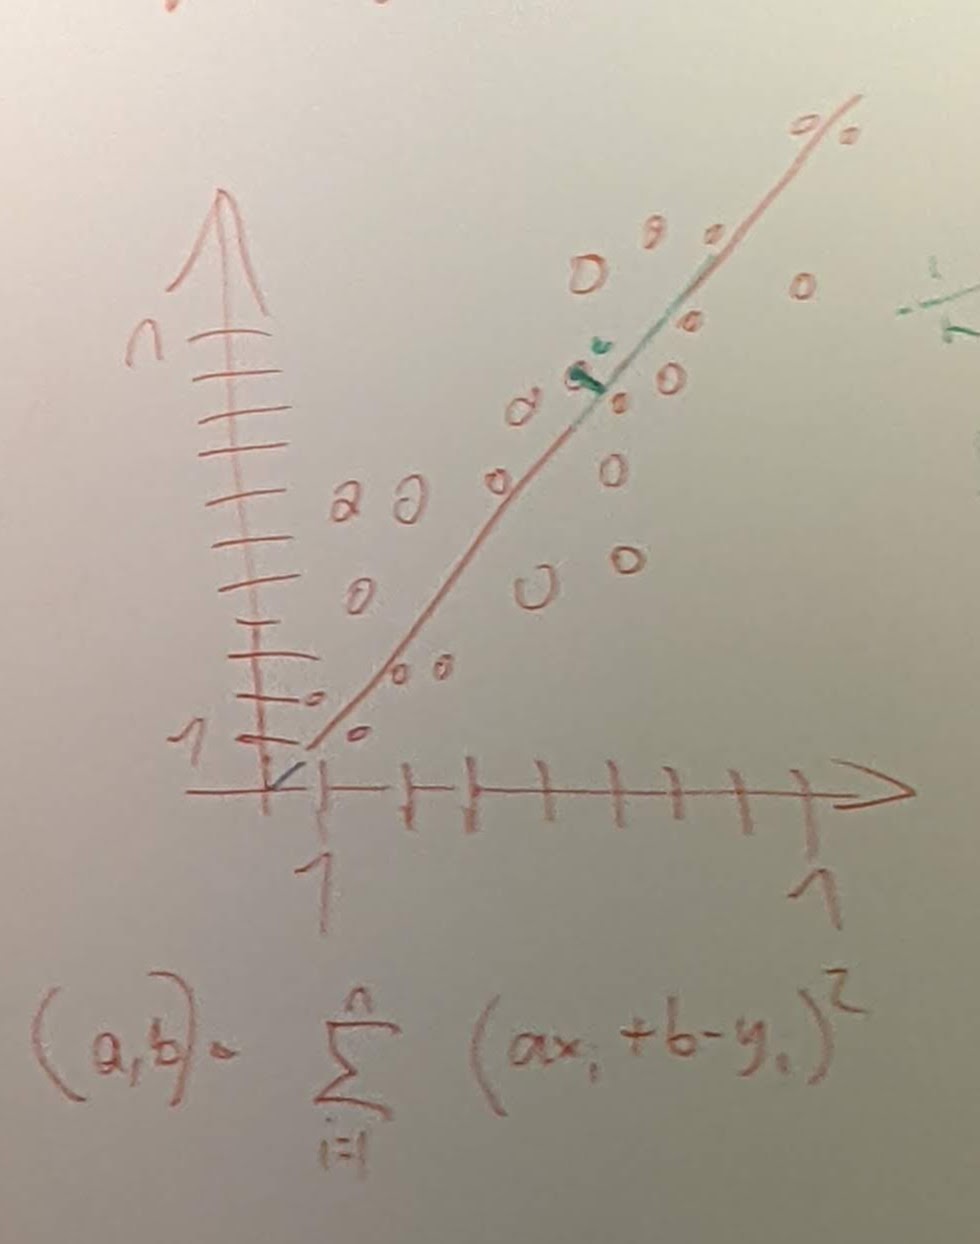 n
1
1 n
(a,b) = ∑_{i=1}^{n} (ax_i + b - y_i)^2